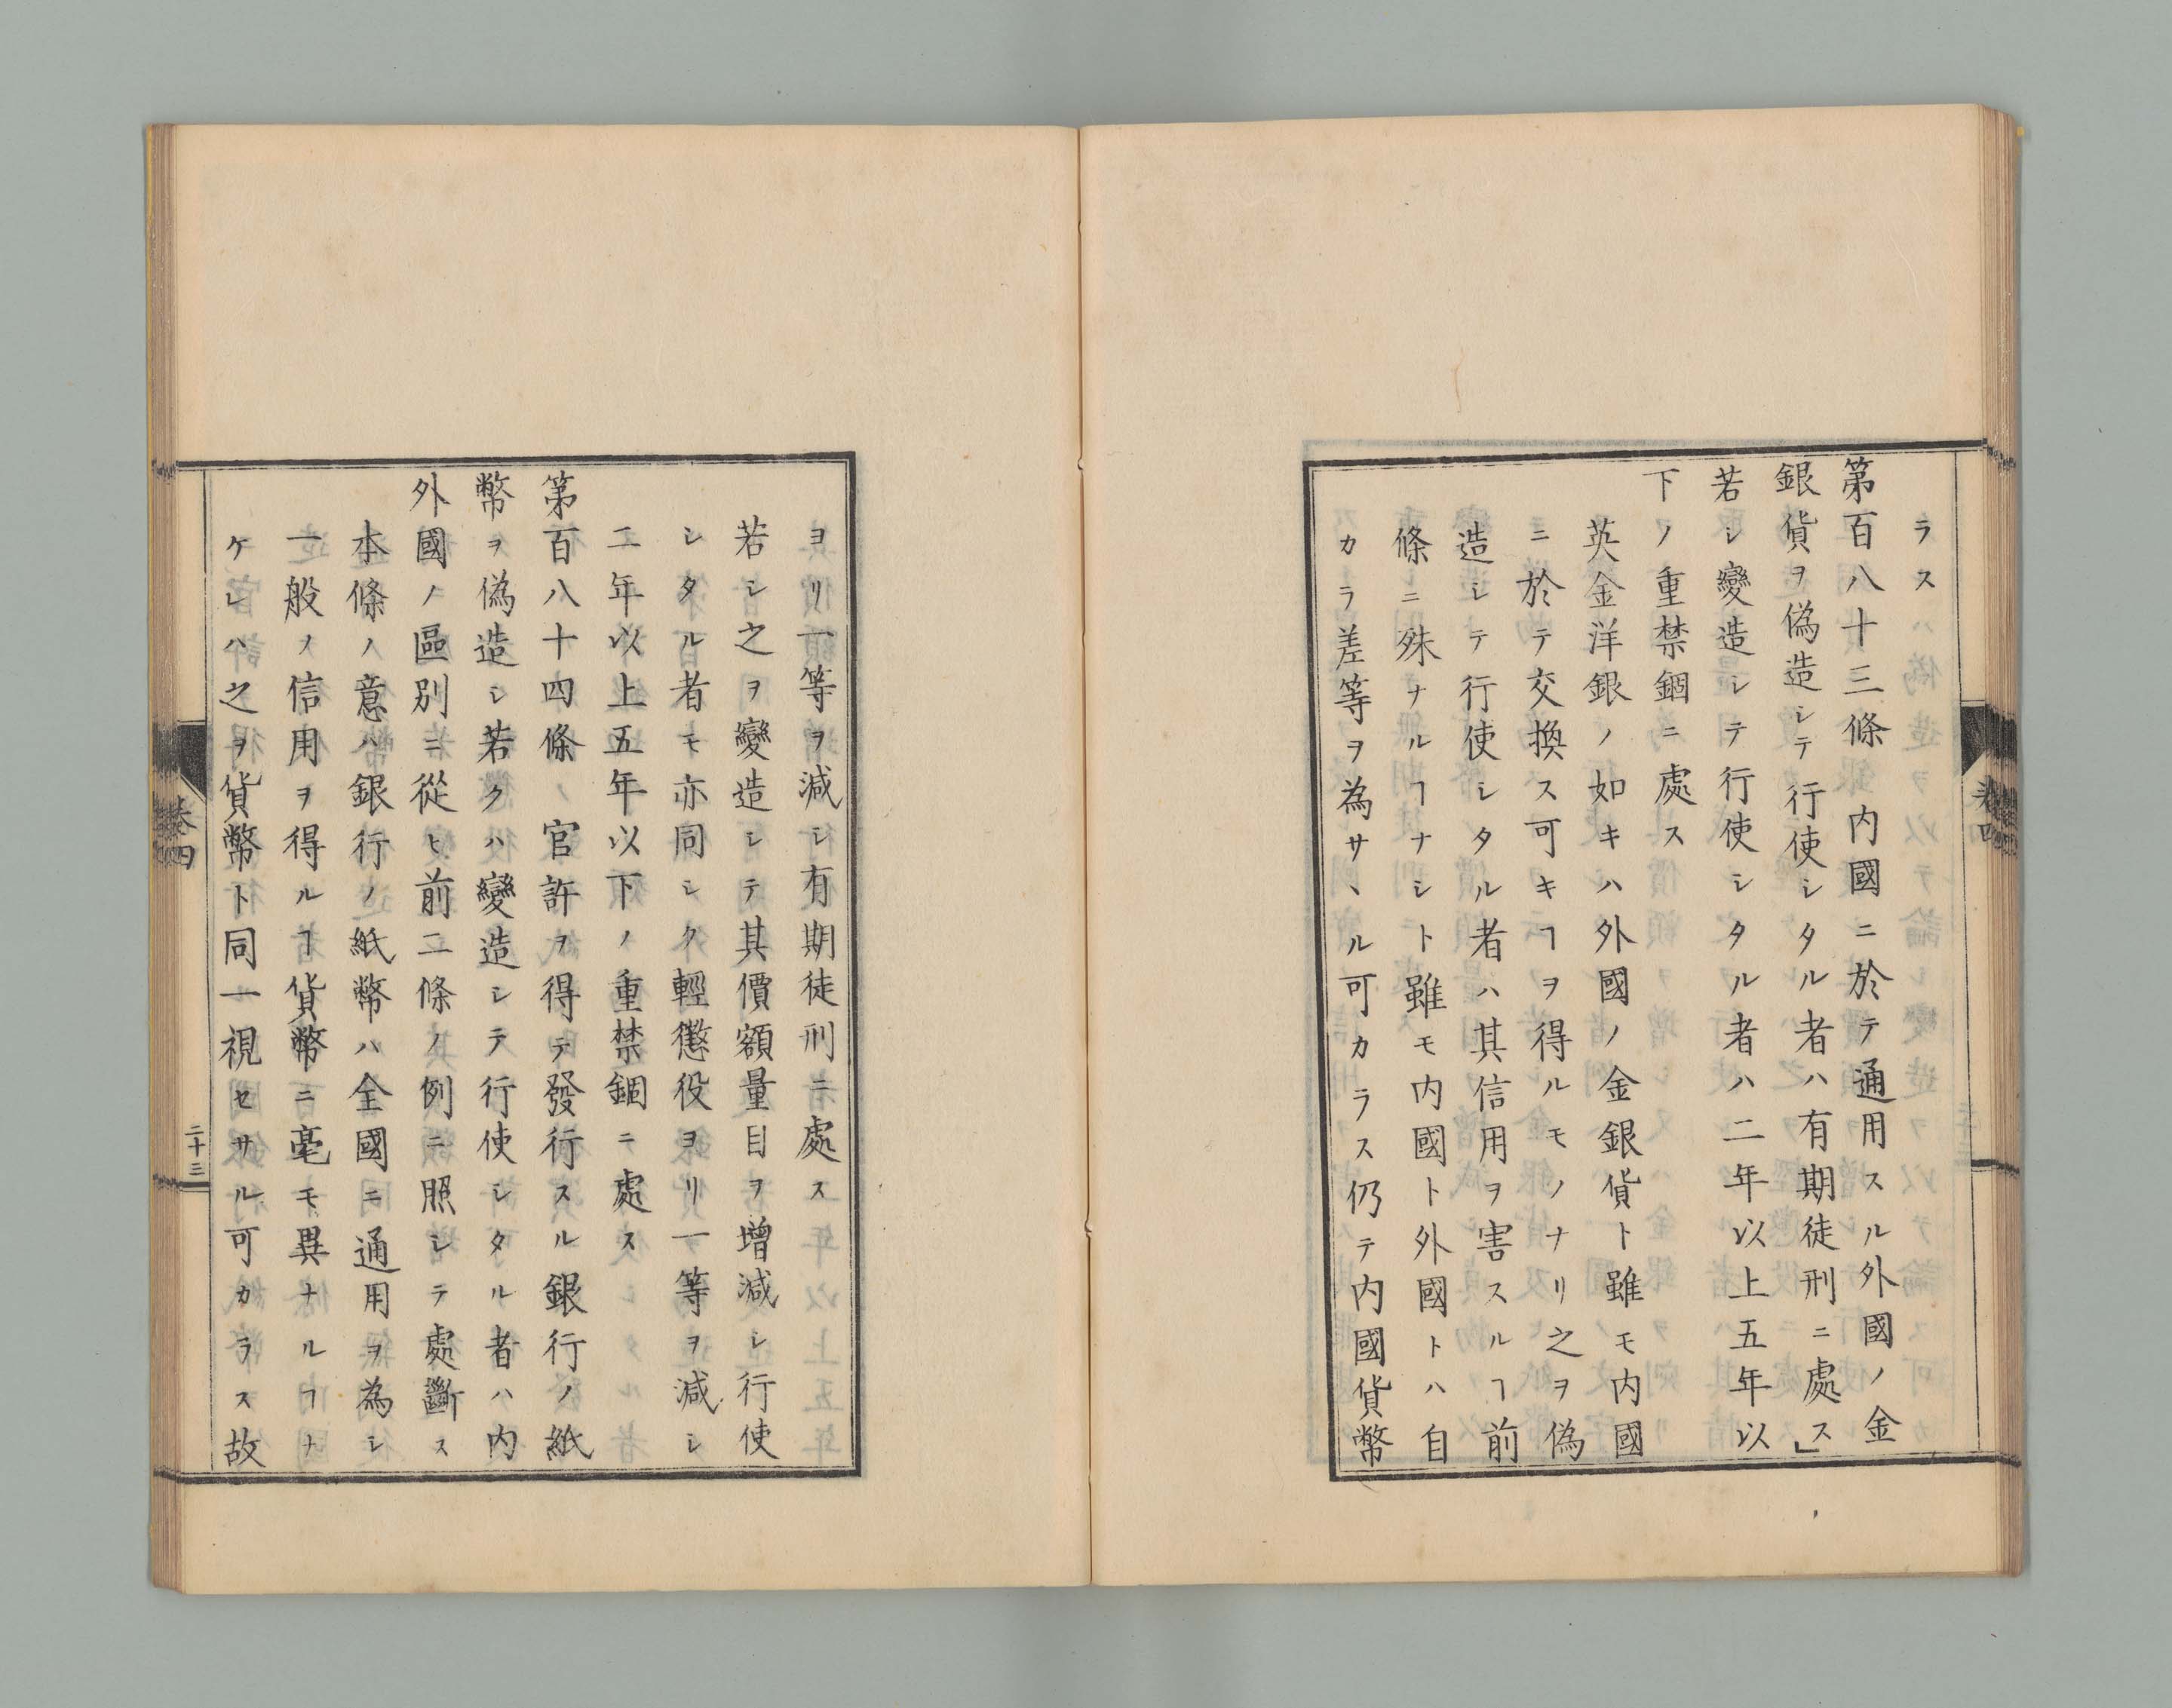 ラス
第百八十三條　內國ニ於テ通用スル外國ノ金
銀貨ヲ偽造シテ行使シタル者ハ有期徒刑ニ處ス」
若シ變造シテ行使シタル者ハ二年以上五年以
下ノ重禁錮ニ處ス
英金洋銀ノ如キハ外國ノ金銀貨ト雖モ內國
ニ於テ交換ス可キヿヲ得ルモノナリ之ヲ偽
造シテ行使シタル者ハ其信用ヲ害スルヿ前
條ニ殊ナルヿナシト雖モ內國ト外國トハ自
カラ差等ヲ為サヽル可カラス仍テ內國貨幣
ヨリ一等ヲ減シ有期徒刑ニ處ス
若シ之ヲ變造シテ其價額量目ヲ增減シ行使
シタル者モ亦同シク輕懲役ヨリ一等ヲ減シ
二年以上五年以下ノ重禁錮ニ處ス
第百八十四條　官許ヲ得テ發行スル銀行ノ紙
幣ヲ偽造シ若クハ變造シテ行使シタル者ハ內
外國ノ區別ニ從ヒ前二條ノ例ニ照シテ處斷ス
本條ノ意ハ銀行ノ紙幣ハ全國ニ通用ヲ為シ
一般ノ信用ヲ得ルヿ貨幣ニ毫モ異ナルヿナ
ケレハ之ヲ貨幣ト同一視セサル可カラス故
卷四
二十三